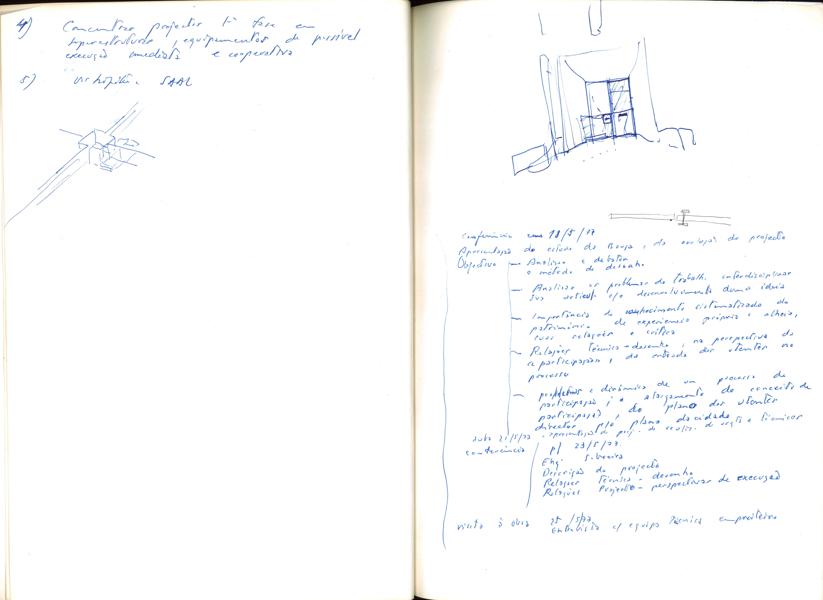 4) Concentrar projectos 1ª fase em
infraestruturas, equipamentos de possível
execução imediata e cooperativa
5) SAAL
Conferência 18/5/77
Apresentação do da Bouça, da evolução do projecto
Objectivo — Analisar e debater
o método de desenho
— Analisar os problemas do trabalho interdisciplinar
sua articul. c/o desenvolvimento duma ideia
— Importância do conhecimento sistematizado do
património de experiência própria e alheia,
suas relações e crítica
— Relações técnica-desenho, na perspectiva da
participação, da entrada dos utentes no
processo
— e dinâmica de um processo de
participação; o alargamento do conceito de
participação, do plano dos utentes
director p/o plano da cidade
aula 21/5/77 - apresentação do proj. de e técnicos
conferência p/ 23/5/77.
Eng.
Descrição do projecto
Relações técnica - desenho
Relações Projecto - perspectivas de execução
visita à obra 25/5/77
Entrevista c/ equipa técnica empreiteiro